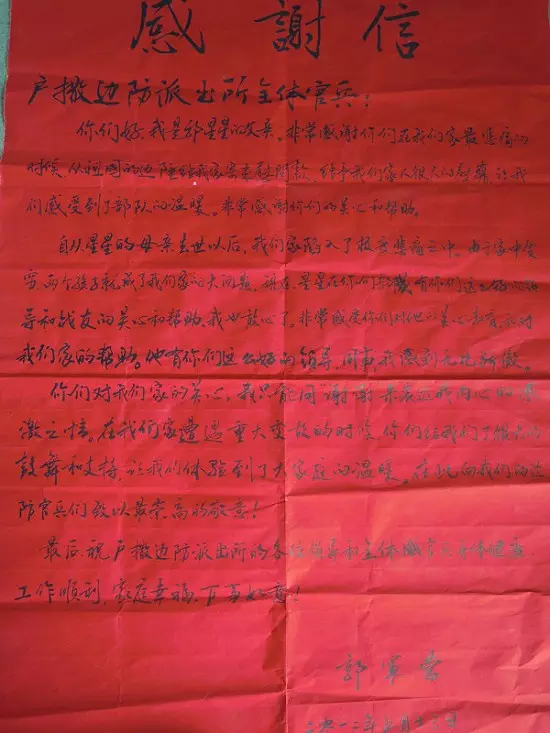 感謝信
户撒边防派出所全体官兵！
你们好，我是郭星星的父亲。非常感谢你们在我们家最悲痛的
时候，从祖国的边陲给我家寄来慰问款，给予我们家人很大的鼓舞，让我
们感受到了部队的温暖。非常感谢你们的关心和帮助。
自从星星的母亲去世以后，我们家陷入了极度悲痛之中，由于家中贫
两个孩子就成了我们家的大问题，现在，星星在你们有你们这么好的领
导和战友的关心和帮助，我也放心了。非常感谢你们对他的关心教育，和对
我们家的帮助。他有你们这么好的领导，同事，我感到无比骄傲。
你们对我们家的关心，我只能用谢谢来表达我内心的感
激之情。在我们家遭遇重大变故的时候，你们给我们了很大的
鼓舞和支持，让我们体验到了大家庭的温暖。在此向我们的边
防官兵们致以最崇高的敬意！
最后，祝户撒边防派出所的各位领导和全体官兵身体健康，
工作顺利，家庭幸福，万事如意！
郭军荣
二〇一二年